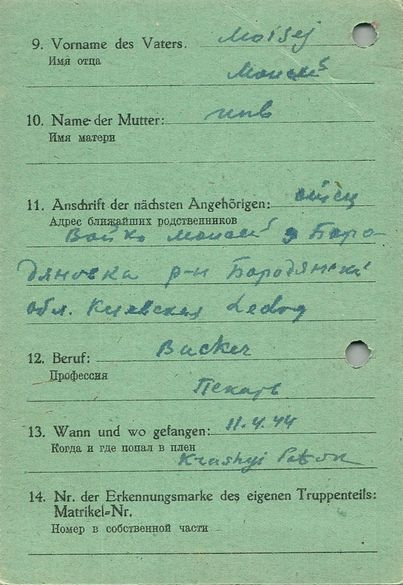 9. Vorname des Vaters. Moisej
Имя отца
Моисей
10. Name der Mutter:
Имя матери
11. Anschrift der nächsten Angehörigen: отец
Адрес ближайших родственников
Бойко Моисей Боро
дяновка р-н Бородянский
обл. Киевская
12. Beruf: Bäcker
Профессия
Пекарь
13. Wann und wo gefangen: 11.4.44
Когда и где попал в плен
14. Nr. der Erkennungsmarke des eigenen Truppenteils:
Matrikel-Nr.
Номер в собственной части